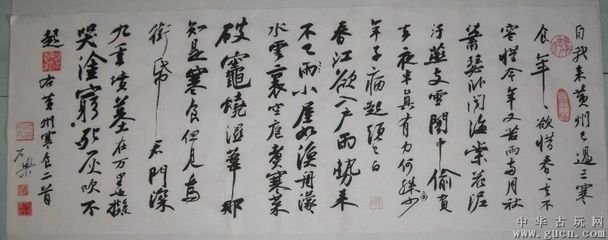 自我来黄州已過三寒
食年〻欲惜春〻去不
容惜今年又苦雨两月秋
蕭瑟卧聞海棠花泥
汙燕支雪闇中偷負
去夜半真有力何殊少
年子病起頭已白
春江欲入戶雨勢来
不已雨小屋如漁舟濛
水雲裏空庖煮寒菜
破竈燒濕葦那
知是寒食但見烏
銜帋君門深
九重墳墓在万里也擬
哭塗窮死灰吹不
起 右黄州寒食二首
中华古玩网
www.gucn.com